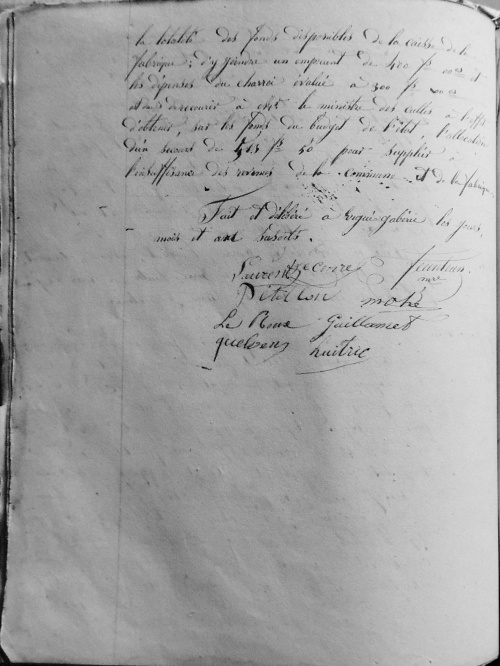 la totalité des fonds disponibles de la caisse de la
fabrique ; d'y joindre un emprunt de 400 fs 00 ces et
les dépenses du charroi évalué à 300 fs 00 ces
et de recourir à Mr le ministre des cultes à l'effet
d'obtenir, sur les fonds du budget de l'état, l'allocation
d'un secours de 515 fs 50 pour suppléer à
l'insuffisance des revenus de la commune et de la fabrique
Fait et délibéré à Ergué gabéric les jour,
mois et an susdits.
Laurent
Pétillon mahé
Le Roux Guillamet
huitric